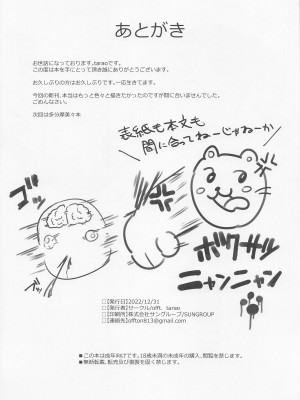 あとがき
お世話になっております。taraoです。
この度は本を手にとって頂き誠にありがとうございます。
お久しぶりの方はお久しぶりです。一応生きてます。
今回の新刊、本当はもっと色々と描きたかったのですが間に合いませんでした。
ごめんなさい。
次回は多分摩美々本
表紙も本文も
間に合ってねーじゃねーか
ゴッ
ボクサツ
ニャンニャン
□【発行日】2022/12/31
□【発行者】サークル/offt. tarao
□【印刷所】株式会社サングループ/SUNGROUP
□【連絡先】offton813@gmail.com
■この本は成年向けです。18歳未満の未成年の購入、閲覧を禁じます。
■無断転載、転売及び複製を固く禁じます。